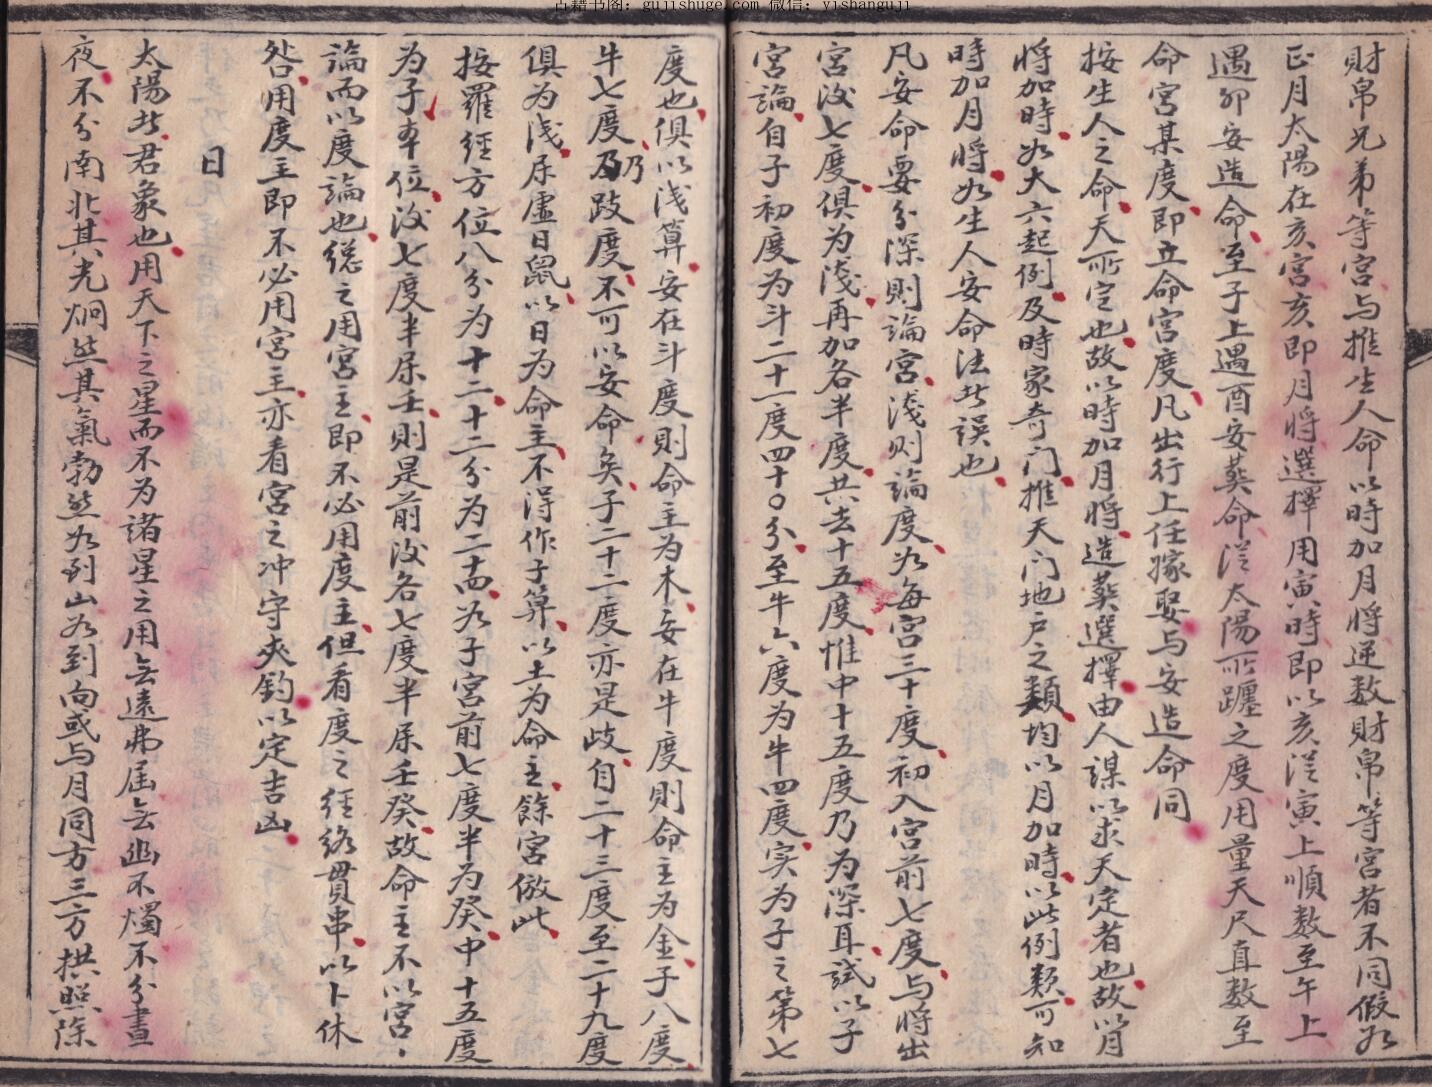 古籍书阁：gujishuge.com 微信：yishanguji
財帛兄弟等宮与推生人命以時加月將逆数財帛等宮者不同假如
正月太陽在亥宮亥即月將選擇用寅時即以亥從寅上順数至午上
遇卯安造命至子上遇酉安葬命從太陽所躔之度用量天尺直数至
命宮某度即立命宮度凡出行上任嫁娶与安造命同
按生人之命天所定也故以時加月將造葬選擇由人謀以求天定者也故以月
將加時如大六起例及時家奇门推天门地户之類均以月加時以此例類可知
時加月將如生人安命法此誤也
凡安命要分深則論宮淺则論度如每宮三十度初入宮前七度与將出
宮後七度俱为淺再加各半度共去十五度惟中十五度乃为深耳試以子
宮論自子初度为斗二十一度四十〇分至牛六度为牛四度実为子之第七
度也俱以淺算安在斗度則命主为木安在牛度則命主为金子八度
牛七度乃歧度不可以安命矣子二十二度亦是歧自二十三度至二十九度
俱为淺屬虛日鼠以日为命主不得作子算以土为命主餘宮倣此
按羅經方位八分为十二十二分为二十四如子宮前七度半为癸中十五度
为子本位後七度半屬壬則是前後各七度半屬壬癸故命主不以宮
論而以度論也總之用宮主即不必用度主但看度之經絡貫串以卜休
咎用度主即不必用宮主亦看宮之冲守夾釣以定吉凶
日
太陽者君象也用天下之星而不为諸星之用無遠弗屆無幽不燭不分晝
夜不分南北其光炯然其氣勃然如到山如到向或与月同方三方拱照除